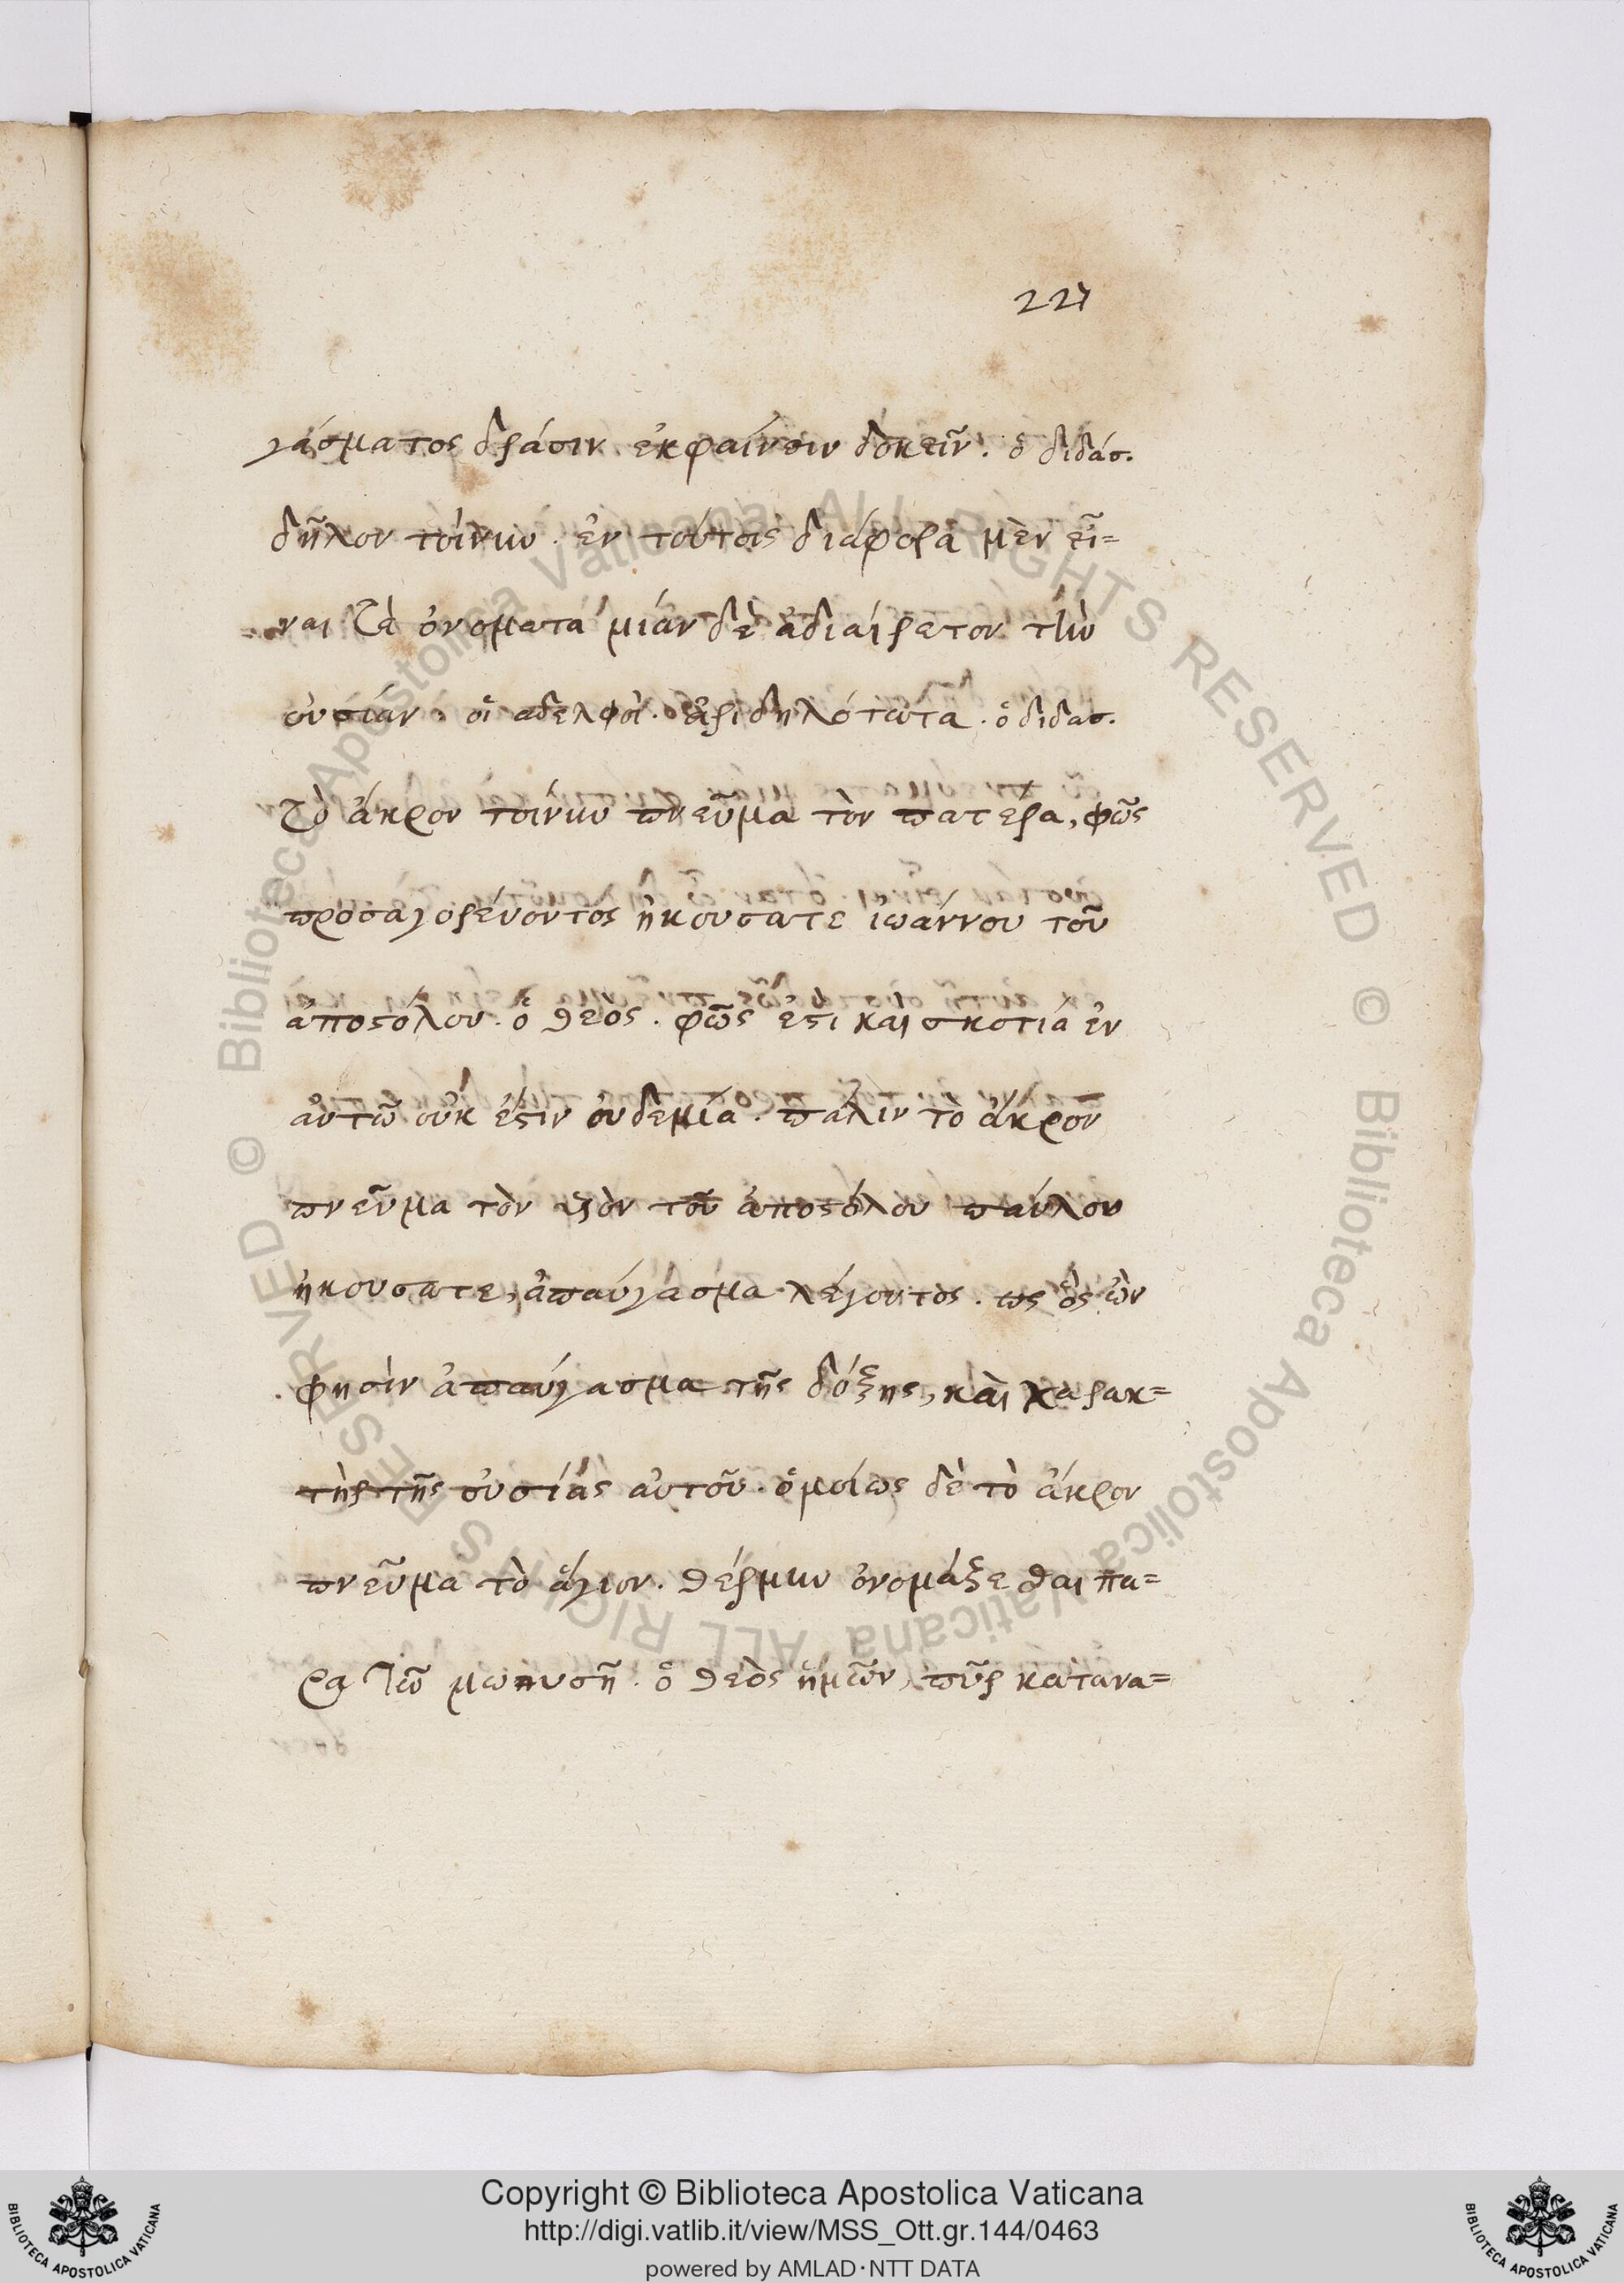 227
γάσματος δρᾶσιν ἐκφαίνειν δοκεῖν. ὁ διδάσ.
δῆλον τοίνυν. ἐν τούτοις διάφορα μὲν εἶ=
ναι τὰ ὀνοματα μίαν δὲ ἀδιαίρετον τὴν
οὐσίαν. οἱ αδελφοὶ. ἀριδηλότατα. ὁ διδασ.
Τὸ ἄκρον τοίνυν πνεῦμα τὸν πατέρα, φῶς
προσαγορεύοντος ἠκουσατε ἰωάννου τοῦ
ἀποστόλου. ὁ θεὸς. φῶς ἐστι καὶ σκοτία ἐν
αὐτῶ οὐκ ἔστιν ὀυδεμία. πάλιν τὸ ἄκρον
πνεῦμα τὸν υἱὸν τοῦ ἀποστόλου παύλου
ἠκουσατε, ἀπαύγασμα λέγοντος. ὡς ὃς ὢν
φησὶν ἀπαύγασμα τῆς δόξης, καὶ χαρακ=
τὴρ τῆς οὐσίας αὐτοῦ. ὁμοίως δὲ τὸ ἄκρον
πνεῦμα τὸ ἅγιον. θέρμην ὀνομάζεσθαι πα=
ρα τῶ μωηυσῆ. ὁ θεὸς ἡμῶν, πῦρ κατανα=
Copyright © Biblioteca Apostolica Vaticana
http://digi.vatlib.it/view/MSS_Ott.gr.144/0463
powered by AMLAD·NTT DATA